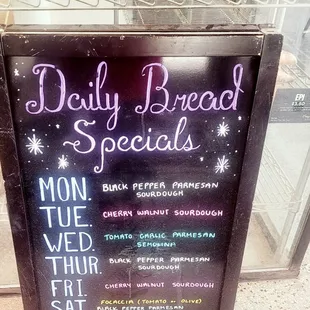 Daily Bread
Specials
MON. BLACK PEPPER PARMESAN
SOURDOUGH
TUE. CHERRY WALNUT SOURDOUGH
WED. TOMATO GARLIC PARMESAN
SEMOLINA
THUR. BLACK PEPPER PARMESAN
SOURDOUGH
FRI. CHERRY WALNUT SOURDOUGH
SAT. FOCACCIA (TOMATO or OLIVE)
BLACK PEPPER PARMESAN
EPI